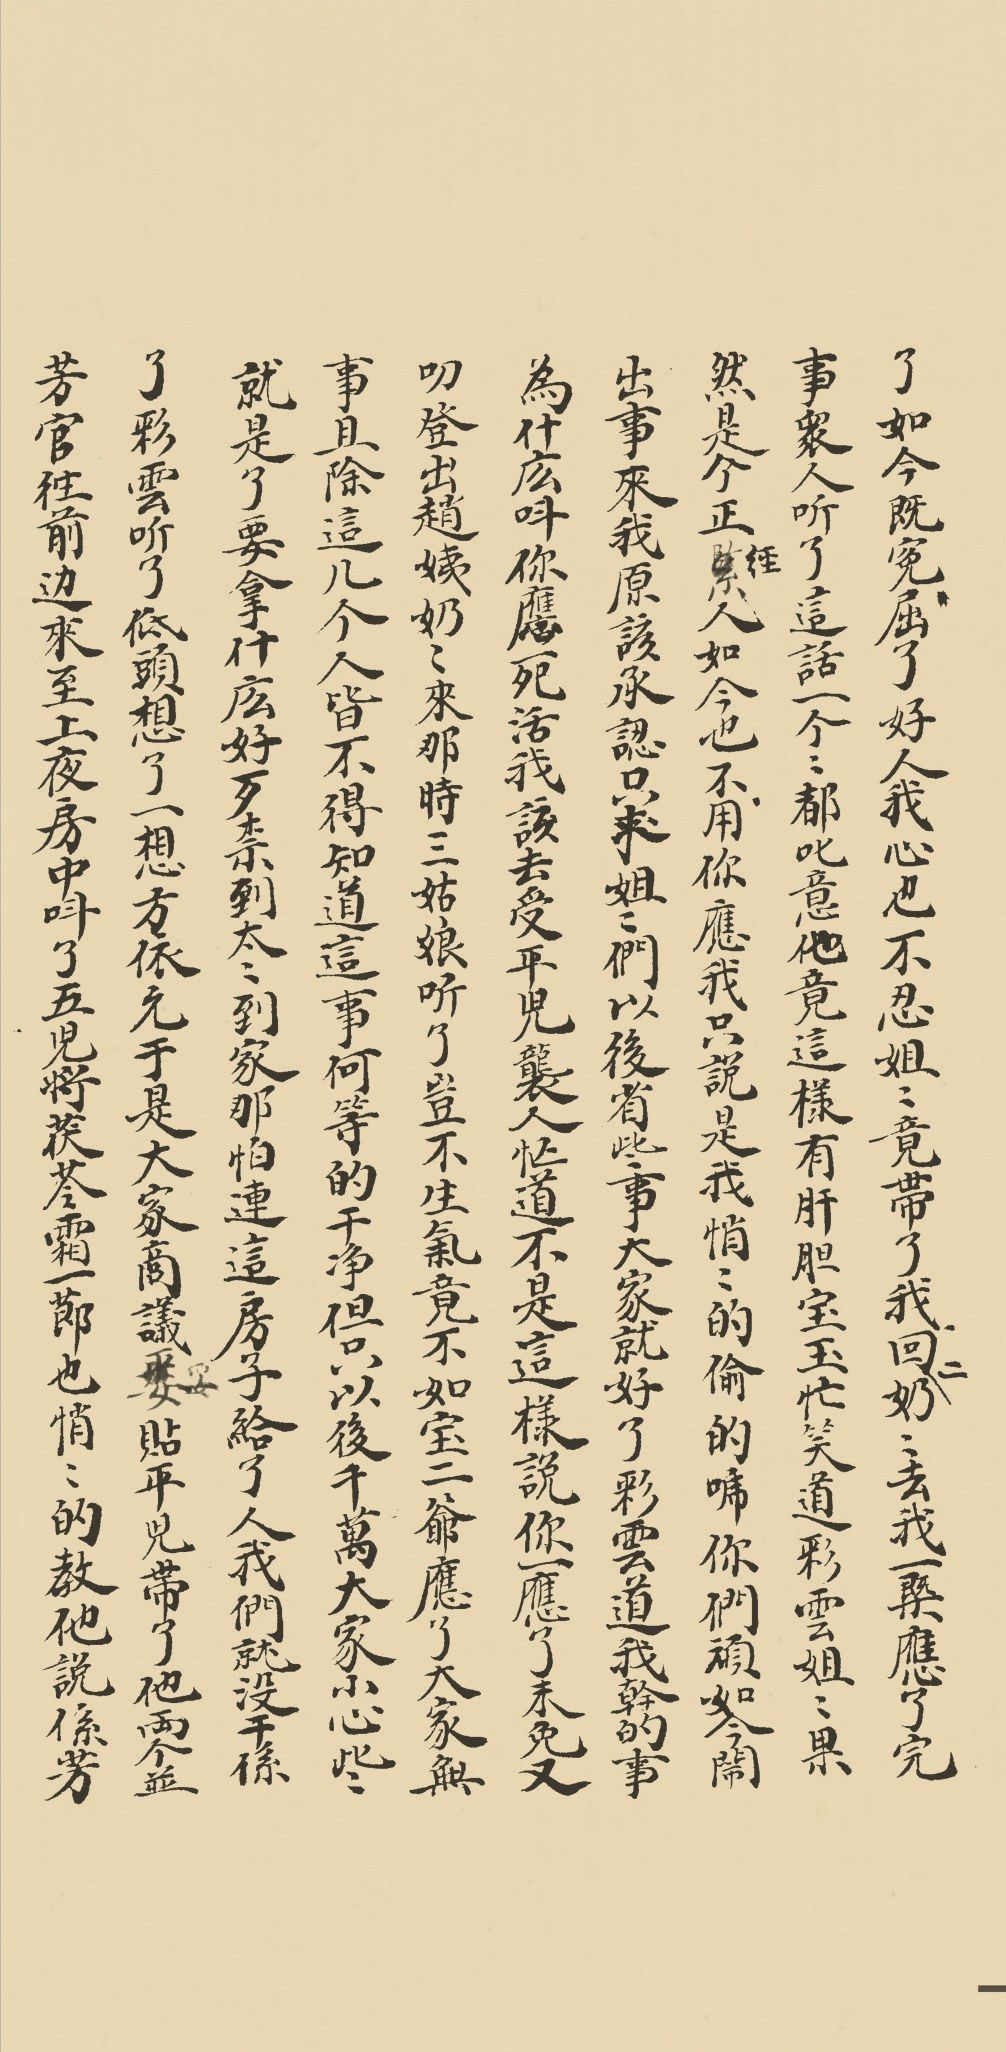 了如今既冤屈了好人我心也不忍姐〻竟帶了我回二奶〻去我一槩應了完
事衆人听了這話一个〻都叱意他竟這樣有肝胆宝玉忙笑道彩雲姐〻果
然是个正經人如今也不用你應我只說是我悄〻的偷的唬你們頑如今鬧
出事來我原該承認只求姐〻們以後省些事大家就好了彩雲道我幹的事
為什庅呌你應死活我該去受平児襲人忙道不是這樣說你一應了未免又
叨登出趙姨奶〻來那時三姑娘听了豈不生氣竟不如宝二爺應了大家無
事且除這几个人皆不得知道這事何等的干净但只以後千萬大家小心些〻
就是了要拿什庅好歹柰到太〻到家那怕連這房子給了人我們就没干係
了彩雲听了低頭想了一想方依允于是大家商議妥貼平児帶了他両个並
芳官徃前边來至上夜房中呌了五児將茯苓霜一節也悄〻的教他說係芳